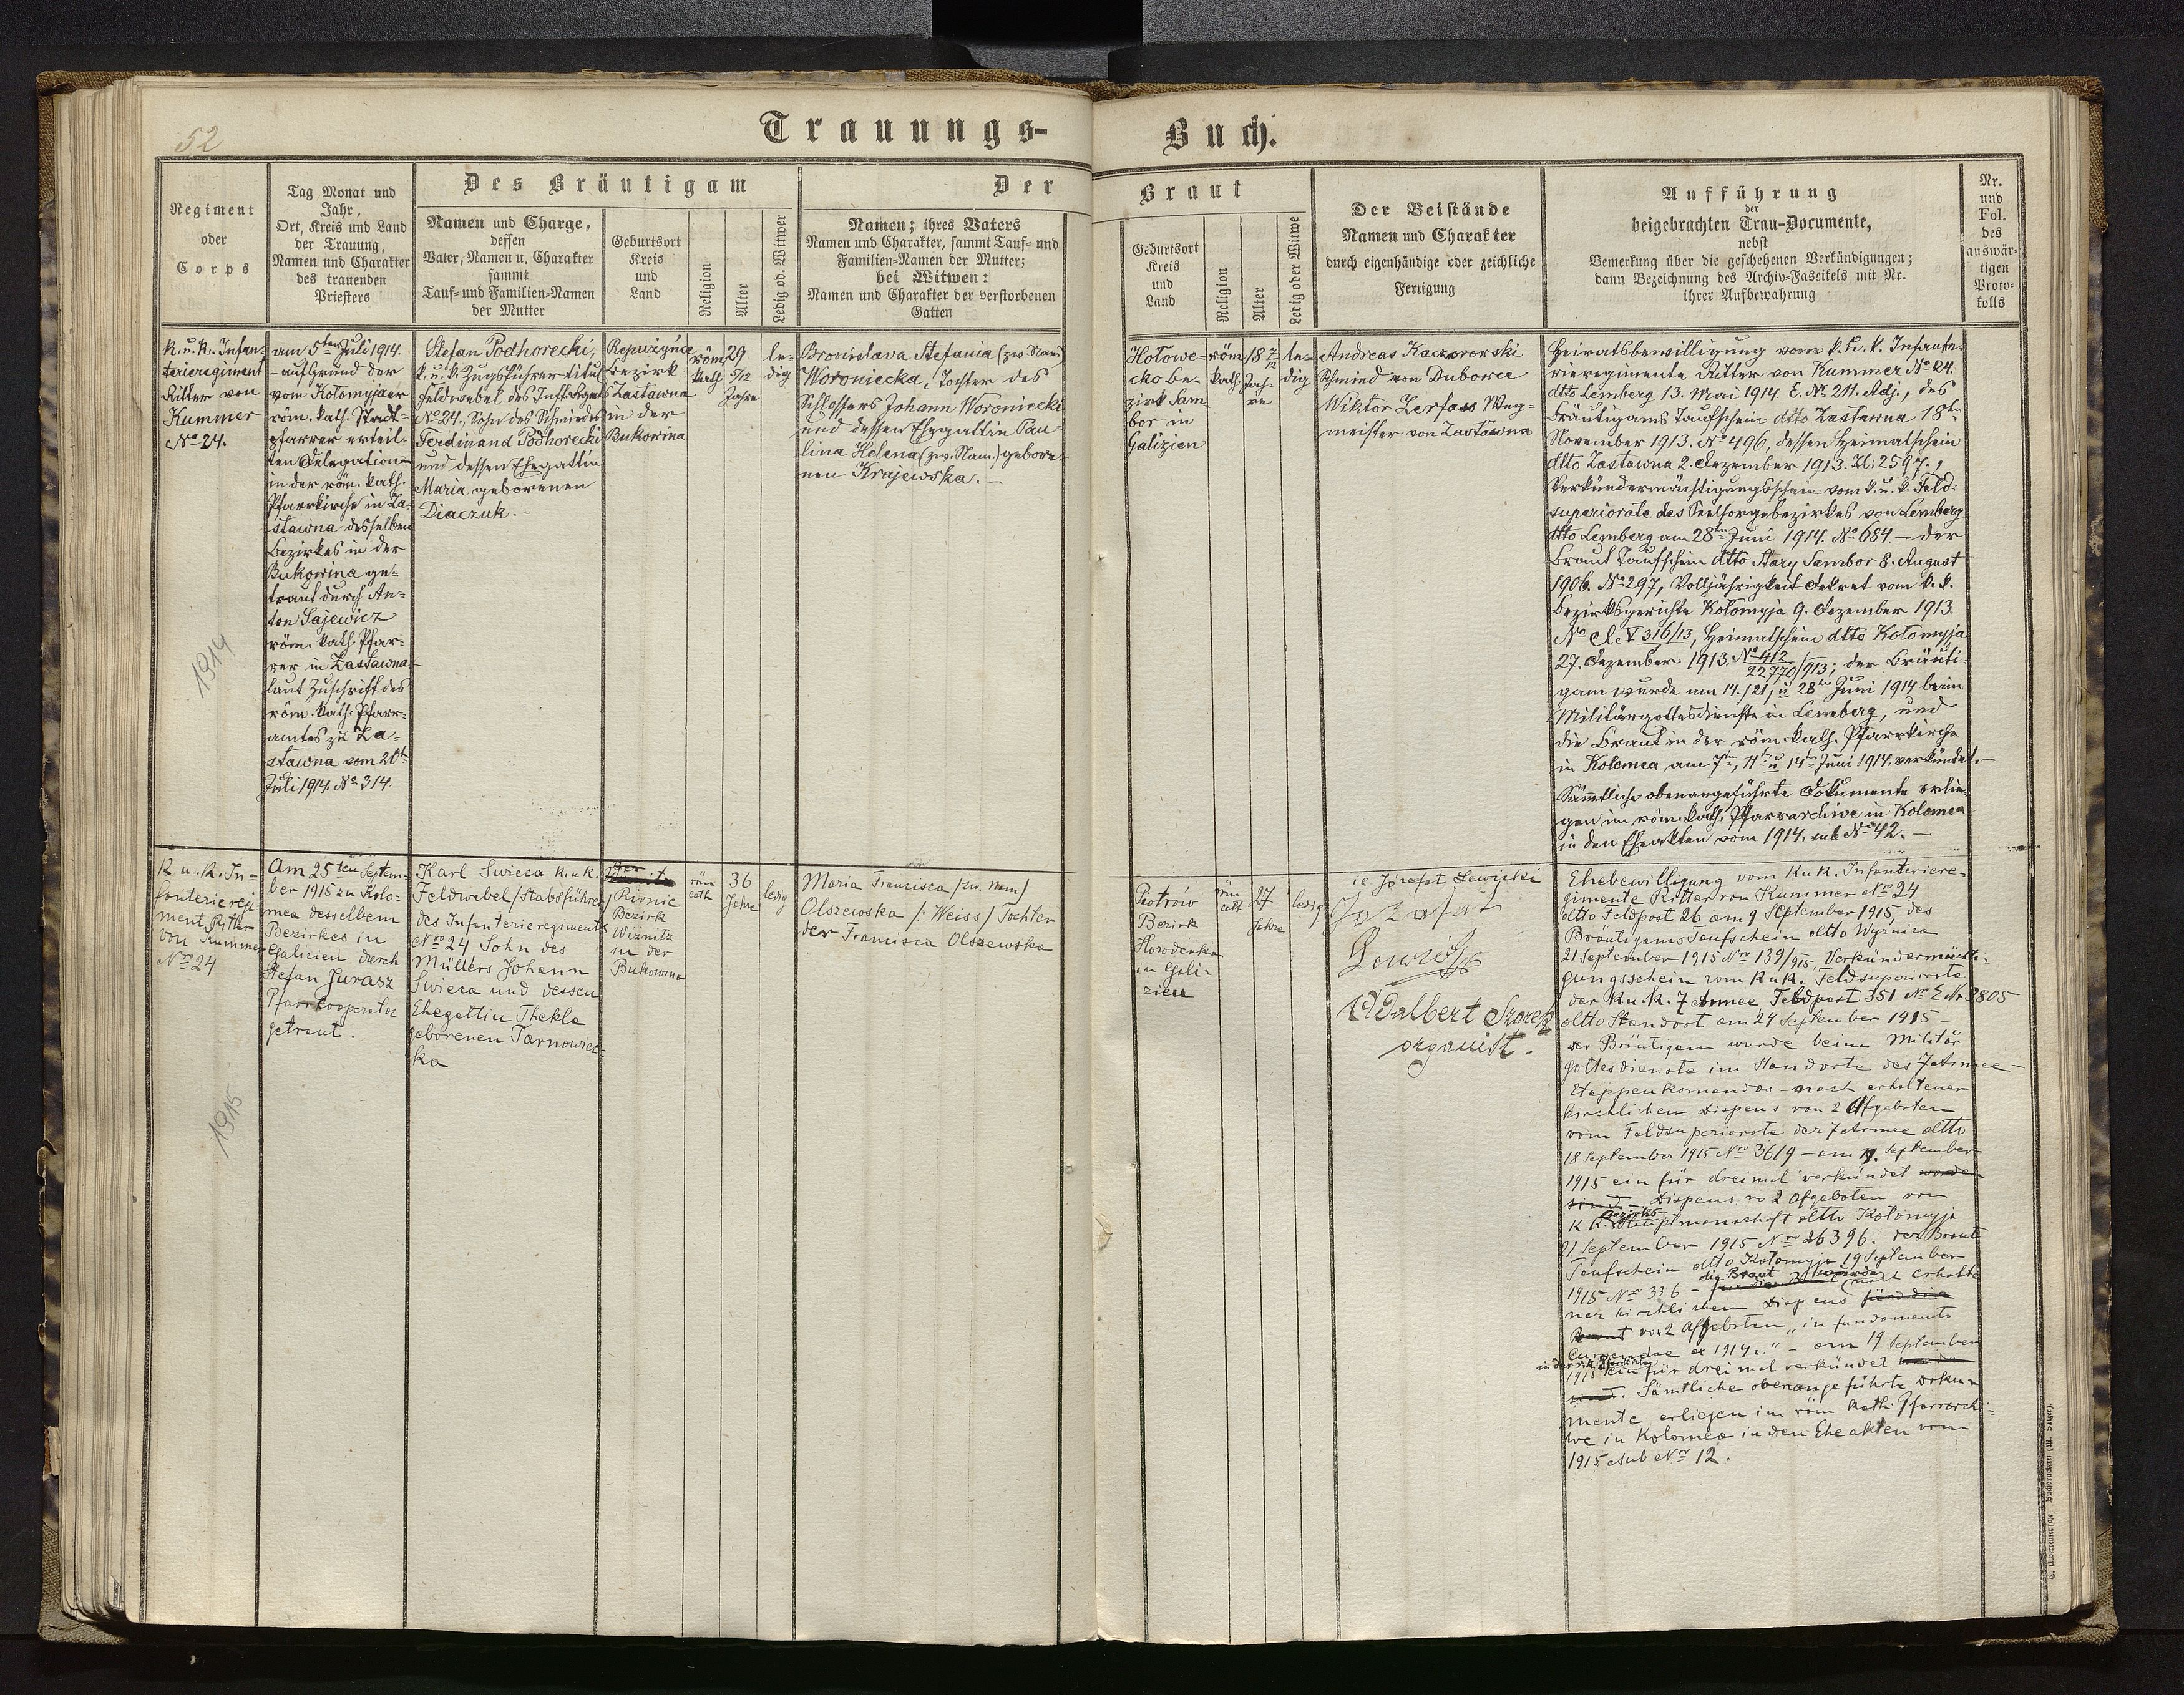 52
Trauungs-
Buch.
Regiment
oder
Corps
Tag Monat und
Jahr,
Ort, Kreis und Land
der Trauung,
Namen und Charakter
des trauenden
Priesters
Des Bräutigam
Namen und Charge,
dessen
Vater, Namen u. Charakter
sammt
Tauf- und Familien-Namen
der Mutter
Geburtsort
Kreis
und
Land
Religion
Alter
Ledig od. Witwer
Der
Namen; ihres Vaters
Namen und Charakter, sammt Tauf- und
Familien-Namen der Mutter;
bei Witwen:
Namen und Charakter der verstorbenen
Gatten
Braut
Geburtsort
Kreis
und
Land
Religion
Alter
Ledig oder Witwe
Der Beistände
Namen und Charakter
durch eigenhändige oder zeichliche
Fertigung
Aufführung
der
beigebrachten Trau-Documente,
nebst
Bemerkung über die geschehenen Verkündigungen;
dann Bezeichnung des Archiv-Fascikels mit Nr.
ihrer Aufbewahrung
Nr.
und
Fol.
des
auswär-
tigen
Proto-
kolls
K. u. K. Infan-
terieregiment
Ritter von
Kummer
No 24.
1914
am 5ten Juli 1914.
– auf Grund der
vom Kolomyjaer
röm. kath. Stadt-
pfarrer erteil-
ten Delegation –
in der röm. kath.
Pfarrkirche in Za-
stawna desselben
Bezirkes in der
Bukowina ge-
traut durch An-
ton Sajewicz
röm. kath. Pfar-
rer in Zastawna
laut Zuschrift des
röm. kath. Pfarr-
amtes zu Za-
stawna vom 20t
Juli 1914. No 314.
Stefan Podhorecki,
k. u. k. Zugsführer titul
Feldwebel des Inft. Regmts
No 24., Sohn des Schmiedes
Ferdinand Podhorecki
und dessen Ehegattin
Maria geborenen
Diaczuk. –
Repużyńce
Bezirk
Zastawna
in der
Bukowina
röm
kath
29
5/12
Jahre
le-
dig
Bronislava Stefania (zw. Nam.)
Woroniecka, Tochter des
Schlossers Johann Woroniecki
und dessen Ehegattin Pau-
lina Helena (zw. Nam.) gebore-
nen Krajewska. –
Hołowe-
cko Be-
zirk Sam-
bor in
Galizien
röm
kath.
18 7/12
Jah-
re
le-
dig
Andreas Kaczorowski
Schmied von Dubowce
Wiktor Zerfass Weg-
meister von Zastawna
Heiratsbewilligung vom k. u. k. Infante-
rieregimente Ritter von Kummer No 24.
dtto Lemberg 13. Mai 1914 E. No 211. Adj., des
Bräutigams Taufschein dtto Zastawna 18t
November 1913. No 496, dessen Heimatschein
dtto Zastawna 2. Dezember 1913. Zl: 2597.,
Verkündermächtigungsschein vom k. u. k. Feld-
superiorate des Seelsorgebezirkes von Lemberg
dtto Lemberg am 28ten Juni 1914. No 684. – der
Braut Taufschein dtto Stary Sambor 8. August
1906. No 297, Volljährigkeit Dekret vom k. k.
Bezirksgerichte Kołomyja 9. Dezember 1913
No V 316/13, Heimatschein dtto Kołomyja
27. Dezember 1913. No 412
22770/913; der Bräuti-
gam wurde am 14., 21., u 28ten Juni 1914 beim
Militärgottesdienste in Lemberg, und
die Braut in der röm. kath. Pfarrkirche
in Kolomea am 7ten, 11ten u 14ten Juni 1914. verkündet. –
Sämtliche obenangeführte Dokumente erlie-
gen im röm. kath. Pfarrarchive in Kolomea
in den Eheakten vom 1914. sub No 42. –
K. u. K. In-
fanterieregi
ment Ritter
von Kummer
Nro 24
1915
Am 25ten Septem-
ber 1915 zu Kolo-
mea desselben
Bezirkes in
Galicien durch
Stefan Jurasz
Pfarrkooperator
getraut.
Karl Swieca K. u. k.
Feldwebel /Stabsführer
des Infanterieregiments
Nro 24 Sohn des
Müllers Johann
Swieca und dessen
Ehegattin Thekla
geborenen Tarnowiec-
ka
Rivnie
Bezirk
Wiżnitz
in der
Bukowina
röm
cath
36
Jahre
ledig
Maria Francisca /zw. Nam/
Olszewska /: Weiss/ Tochter
der Francisca Olszewska
Piotrów
Bezirk
Horodenka
in Gali-
zien
röm
cath
27
Jahre
ledig
Józefat Lewicki
Jozafat
Adalbert
organist.
Ehebewilligung vom K u K. Infanteriere-
gimente Ritter von Kummer Nro 24
dtto Feldpost 26 am 9 September 1915, des
Bräutigams Taufschein dtto Wyżnica
21 September 1915 Nro 139/915, Verkündermächti-
gungsschein vom K u K. Feldsuperiorate
der K u. K. 7 Armee Feldpost 351 No E Nr 3805
dtto Standort am 24 September 1915
der Bräutigam wurde beim Militär
gottesdienste im Standorte des 7 Armee –
Etappenkomandos – nach erhaltener
kirchlichen Dispens von 2 Afgeboten
vom Feldsuperiorate der 7 Armee dtto
18 September 1915 Nro 3619 – am 19. September
1915 ein für dreimal verkündet worden
sind – Dispens vo 2 Afgeboten von
K K. Bezirks-Hauptmanschaft dtto Kołomyja
21 September 1915 Nro 26396. der Braut
Taufschein dtto Kołomyja 19 September
1915 Nro 336 – die Braut wurde mit erhalte
ner kirchlichen Dispens
von 2 Affgeboten „in fundamento
Currendae ex 1914 " – am 19 September
1915 ein für dreimal verkündet
Sämtliche obenangeführte Doku-
mente erliegen im röm kath: Pfarrarchi-
we in Kolomea in den Eheakten vom
1915 sub Nro 12.